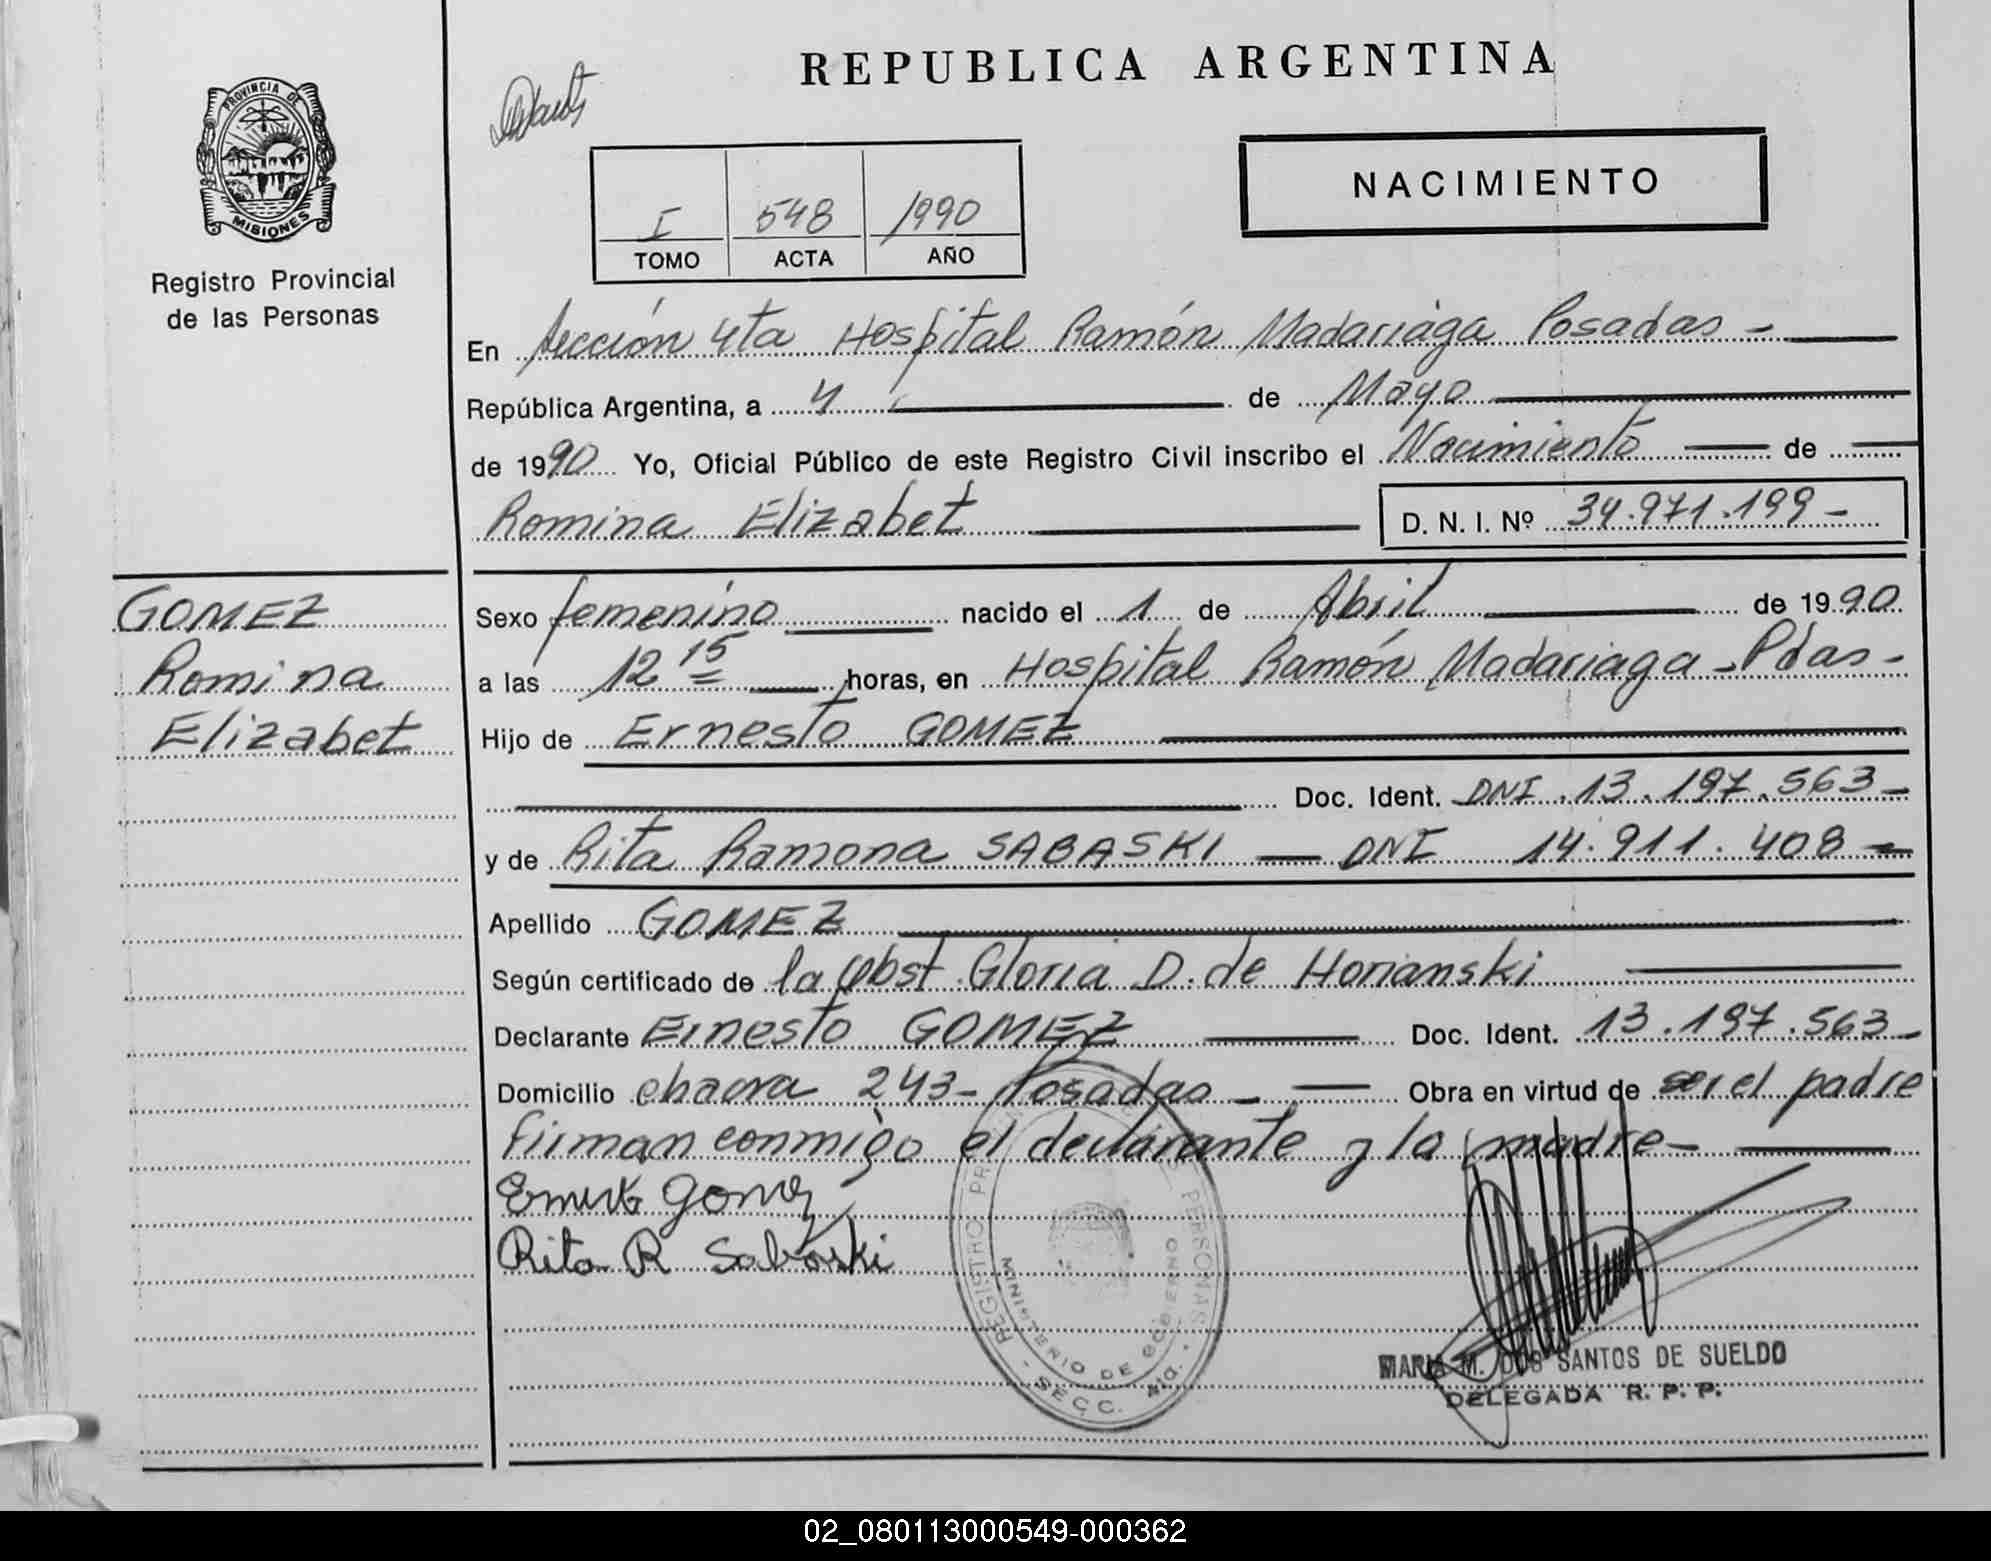 REPUBLICA ARGENTINA
PROVINCIA DE
MISIONES
Registro Provincial
de las Personas
NACIMIENTO
I 548 1990
TOMO ACTA AÑO
En Sección 4ta Hospital Ramón Madariaga Posadas -
República Argentina, a 4 de Mayo
de 1990 Yo, Oficial Público de este Registro Civil inscribo el Nacimiento de
Romina Elizabet D. N. I. Nº 34.971.199 -
GOMEZ
Romina
Elizabet
Sexo femenino nacido el 1 de Abril de 1990
a las 12 15 horas, en Hospital Ramón Madariaga - Pdas -
Hijo de Ernesto GOMEZ
Doc. Ident. DNI . 13 . 197 . 563 -
y de Rita Ramona SABASKI — DNI 14.911.408 -
Apellido GOMEZ
Según certificado de la obst. Gloria D. de Horianski
Declarante Ernesto GOMEZ Doc. Ident. 13.197.563 -
Domicilio chacra 243 - Posadas - Obra en virtud de ser el padre
firman conmigo el declarante y la madre -
Gomez
Rita R Sabaski
REGISTRO PERSONAS
MINISTERIO DE GOBIERNO
SECC. 4ta.
MARIA M. DOS SANTOS DE SUELDO
DELEGADA R. P. P.
02_080113000549-000362